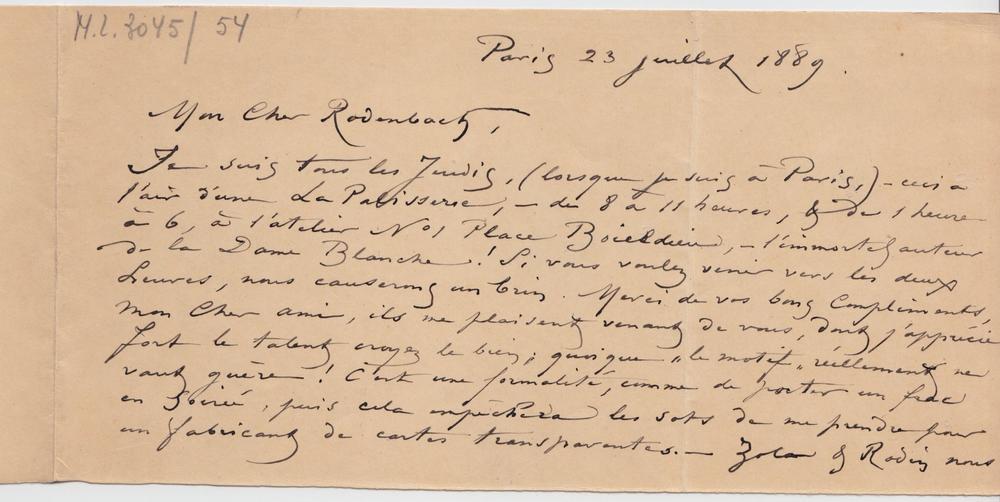 M.L. 3045/54
Paris 23 juillet 1889.
Mon Cher Rodenbach,
Je suis tous les Jeudis, (lorsque je suis à Paris,) – ceci a
l'air d'une La Palisserie, – de 8 a 11 heures, & de 1 heure
à 6, à l'atelier No 1 Place Boieldieu, – l'immortel auteur
de la Dame Blanche! Si vous voulez venir vers les deux
heures, nous causerons un brin. Merci de vos bons compliments,
mon Cher ami, ils me plaisent venant de vous, dont j'apprécie
fort le talent croyez le bien; quoique "le motif" réellement ne
vaut guère! C'est une formalité, comme de porter un frac
en soirée, puis cela empêchera les sots de me prendre pour
un fabricant de cartes transparentes. – Zola & Rodin nous